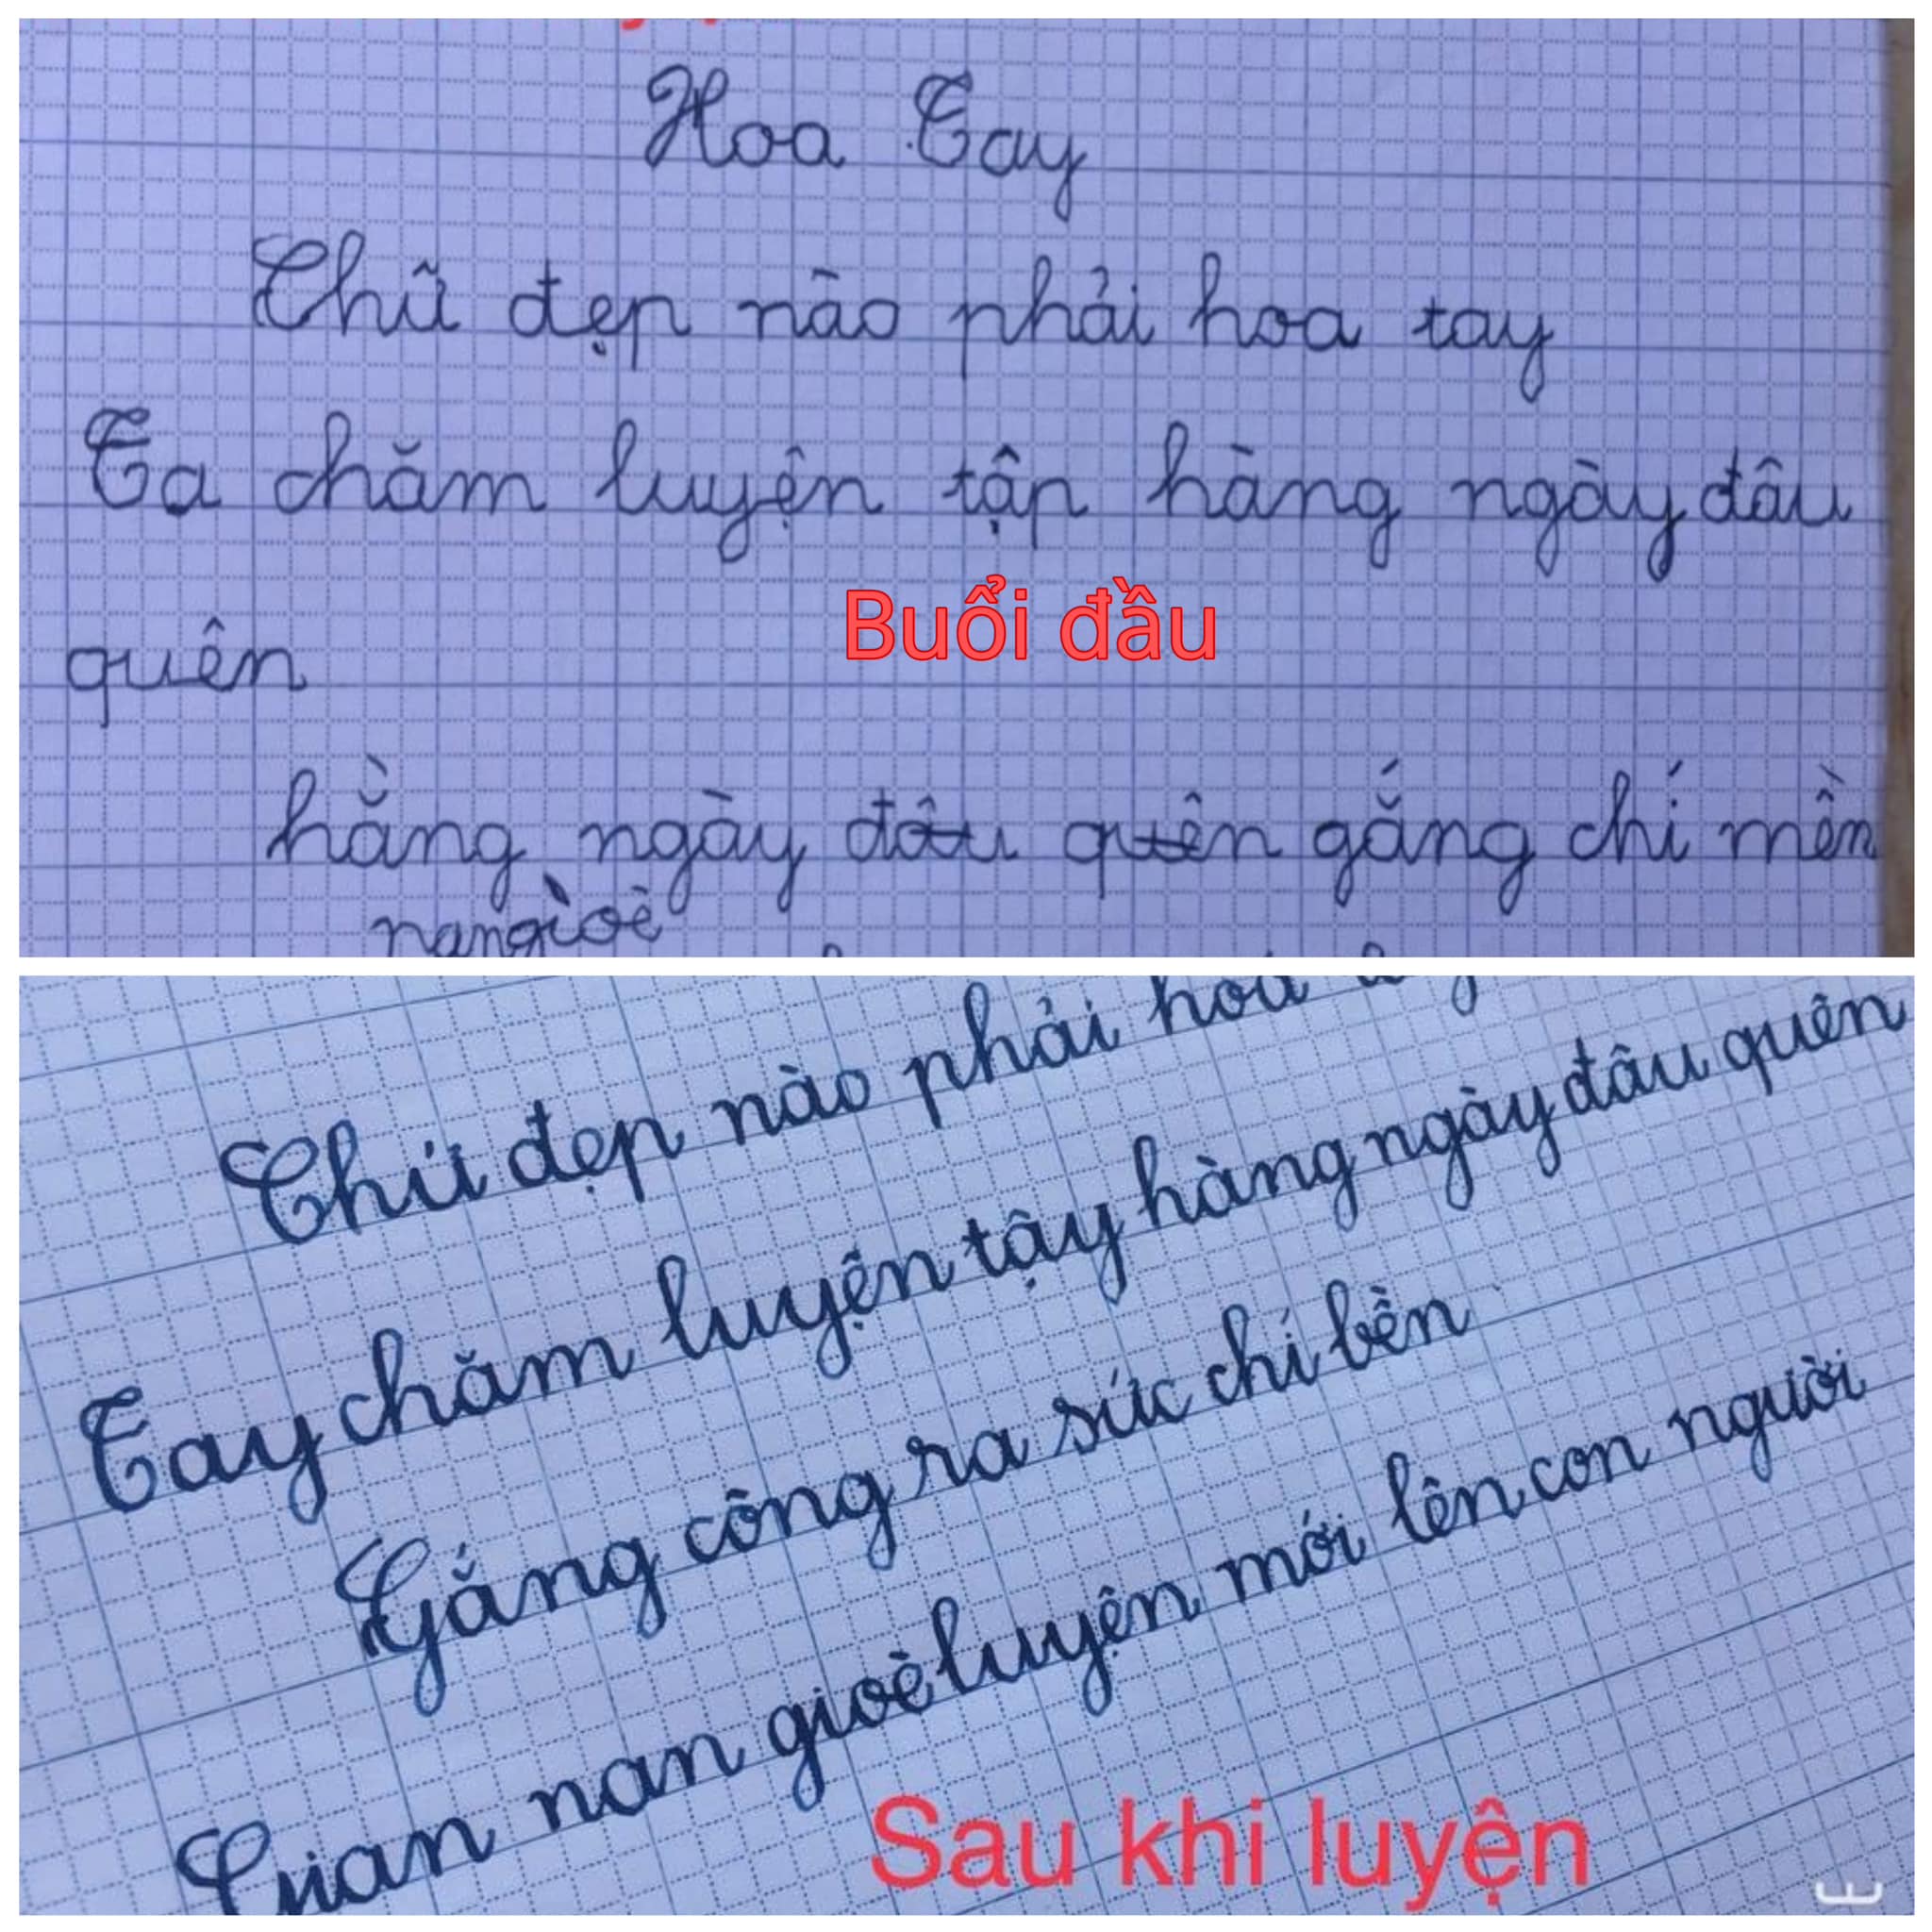 Hoa Tay
Chữ đẹp nào phải hoa tay
Ta chăm luyện tập hàng ngày đâu
Buổi đầu
quên
hằng ngày đâu quên gắng chí mền
nangiòe
Chữ đẹp nào phải hoa
Tay chăm luyện tậy hàng ngày đâu quên
Gắng công ra sức chí bền
nan gioè luyện mới lên con người
Sau khi luyện